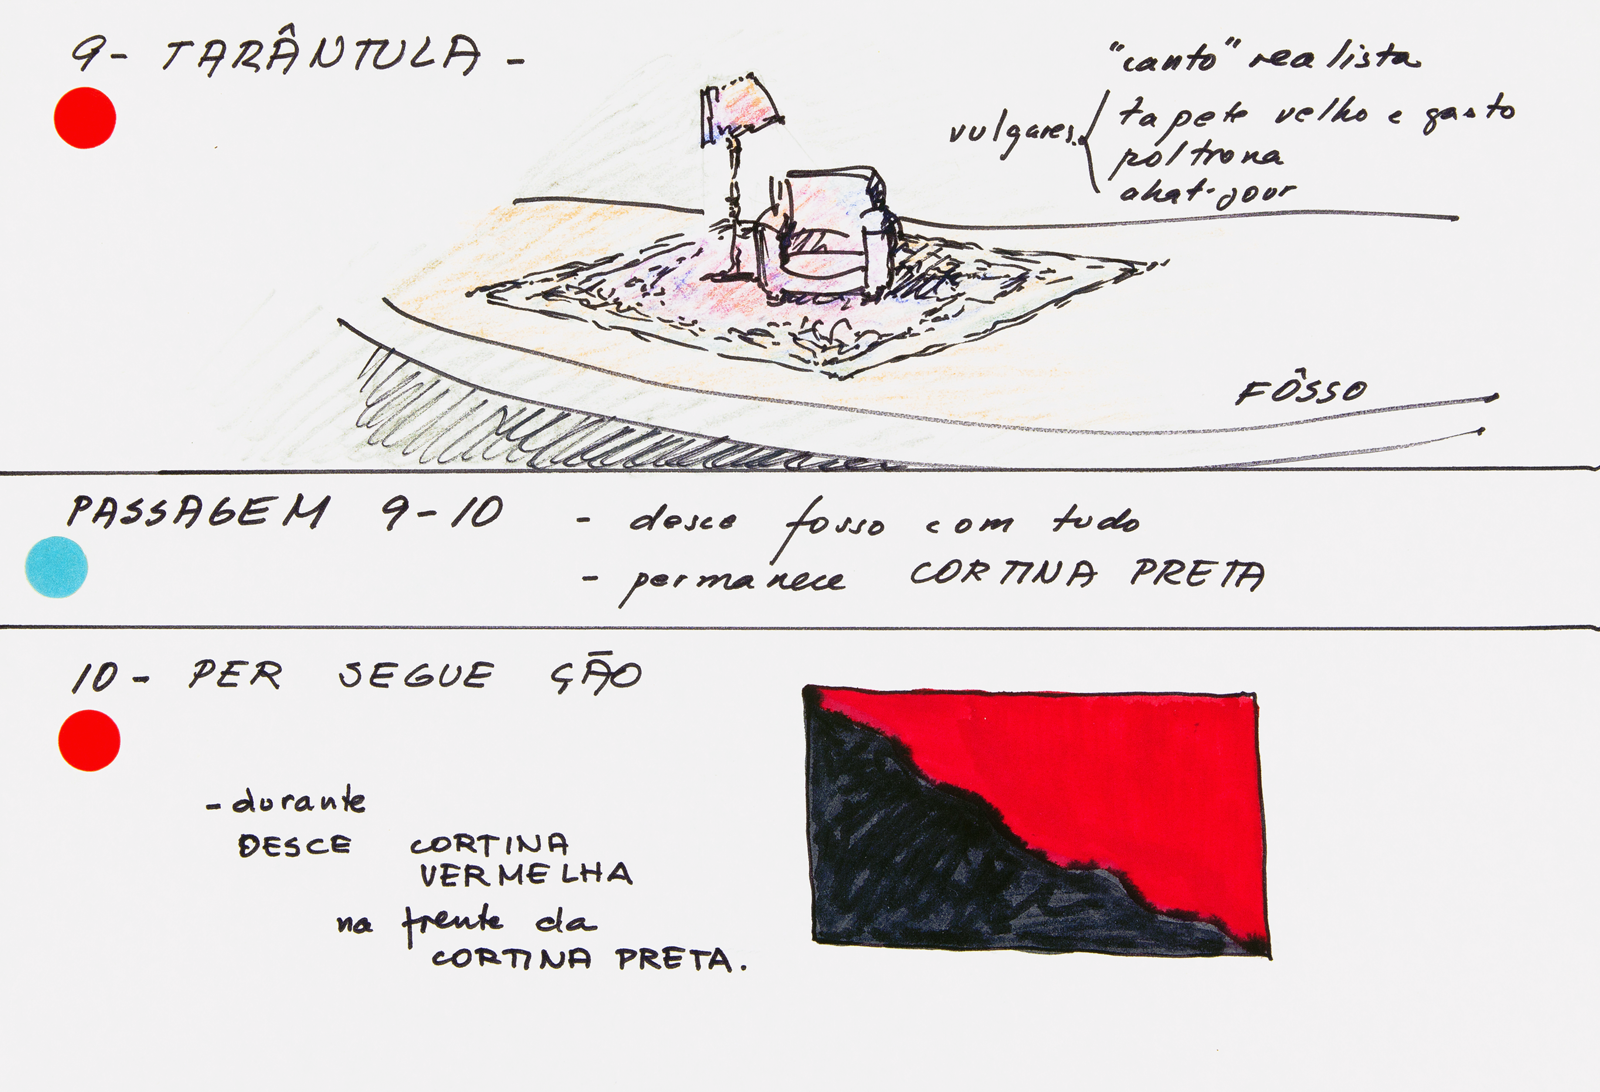 9- TARÂNTULA -
"canto" realista
vulgares
tapete velho e gasto
poltrona
abat-jour
FÔSSO
PASSAGEM 9-10 - desce fosso com tudo
- permanece CORTINA PRETA
10- PER SEGUE ÇÃO
- durante
DESCE CORTINA
VERMELHA
na frente da
CORTINA PRETA.